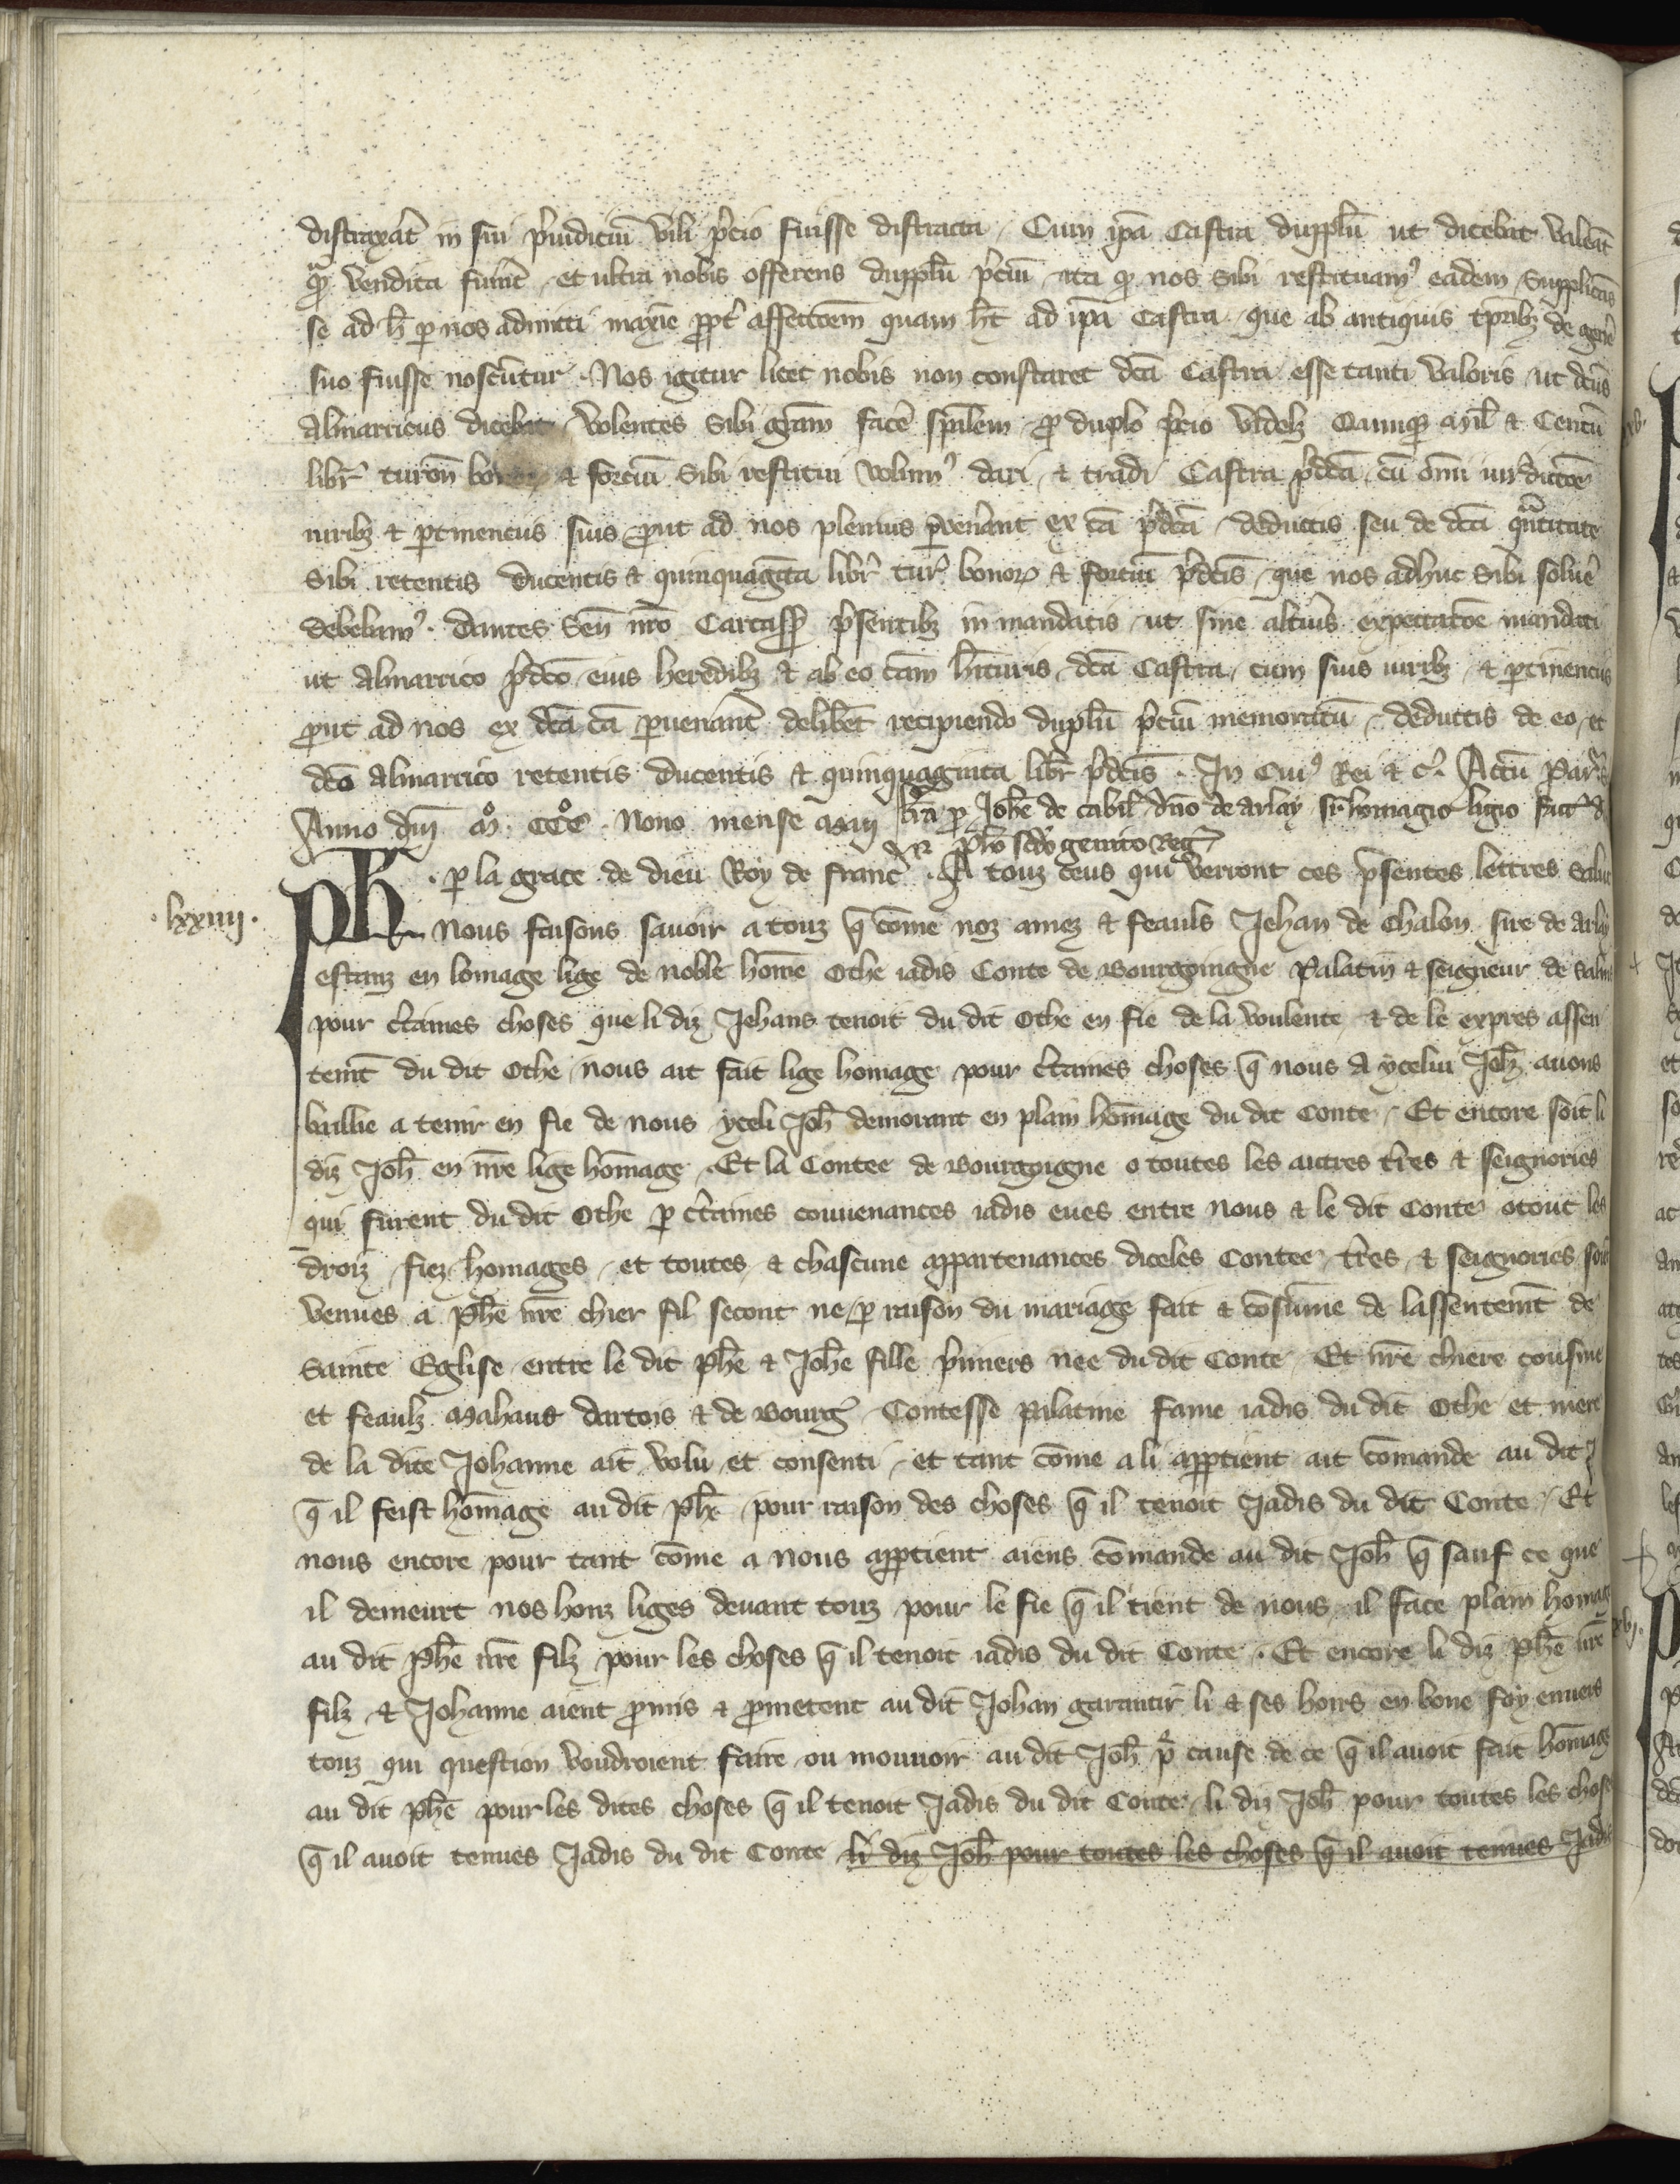 distraxat in sui p̄iudiciū vili p̄cio fuisse distracta. Cum ip̄a Castra dupplū ut dicebat valeāt
qᵃ vendita fuer̄t. et ultra nobis offerens dupplū p̄ciū. ita qᵒ nos sibi restituamꝰ eadem. Supplicās
se ad h̄ ꝑ nos admitti maxīe ꝓpt̄ affectōem quam h̄t ad ip̄a Castra. que ab antiquis tꝑibꝫ de gen̄e
suo fuisse noscūtur. Nos igitur licet nobis non constaret dc̄a Castra esse tanti valoris. ut dc̄us
Almarricus dicebat. Volentes sibi gr̄am facē sp̄alem ꝓ duplo p̄cio videlꝫ Quinqꝫ Mil̄ & Centū
libr̄ turon̄ & forciū sibi restitui volumꝰ dari. & tradi Castra p̄dc̄a. cū om̄i iur̄dictōe
iuribꝫ & ꝑtinenciis suis ꝓut ad nos plenius ꝑven̄ant ex cā p̄dc̄a. deductis seu de dc̄a qᵃntitate
sibi retentis ducentis & quinquaginta libr̄ tur̄ bonoꝝ & forciū p̄dc̄is. que nos adhuc sibi soluē
debebamꝰ. Dantes Sen̄ nr̄o Carcass̄ p̄sentibꝫ in mandatis. ut sine alteriꝰ expectatōe mandati
ut Almarrico p̄dc̄o eius heredibꝫ & ab eo cām h̄ituris. dc̄a Castra. cum suis iuribꝫ. & ꝑtinenciis
ꝓut ad nos ex dc̄a cā ꝑuenerāt delib̄et recipiendo duplū p̄ciū memoratū. deductis de eo. et
dc̄o Almarrico retentis ducentis & quinquaginta libr̄ p̄dc̄is. In Cuiꝰ Rei & c̄. Actū Parisꝰ
Anno dn̄i Mᵒ. CCCᵒ. Nono mense Maii lr̄a ꝑ Joh̄e de cabil̄ dn̄o de arlay sr̄ homagio ligio fact̄
ph̄o sc̄do genito Reḡ
Ph̄. ꝑ la grace de dieu Roy de Franc̄. A touz ceus qui verront ces p̄sentes lettres salut
.lxxiiii. Nous faisons sauoir a touz q̄ cōme noz amez & feauls Jehan de Chalon sire de arlay
estanz en lomage lige de noble hom̄e Othe iadis Conte de Bourgoingne Palatin & seigneur de Salins
pour c̄taines choses que li diz Jehans tenoit du dit Othe en fie de la voulente & de le expres assen
tem̄t du dit Othe. nous ait fait lige homage pour c̄taines choses q̄ nous a ycelui Joh̄ꝫ auons
baillie a tenir en fie de nous yceli Joh̄ demorant en plain hom̄age du dit Conte. Et encore soit li
diz Joh̄ en nr̄e lige hom̄age. Et la Contee de Bourgoigne o toutes les autres tr̄es & seignories
qui furent du dit Othe ꝑ c̄taines conuenances iadis eues entre nous & le dit Conte otout les
droiz fiez homages. et toutes & chascune appartenances diceles Contee. tr̄es. & seignories soiēt
venues a Ph̄e nr̄e chier fil secont ne. ꝑ raison du mariage fait & cōsūme de lassentem̄t de
sainte Eglise. entre le dit Ph̄e & Joh̄e fille p̄miers nee du dit Conte. Et nr̄e chiere cousine
et feaulꝫ Mahaus dartois & de Bourḡ Contesse Palatine fame iadis du dit Othe et mere
de la dite Johanne ait volu et consenti. et tant cōme a li apꝑtient ait cōmande au dit J
q̄ il feist hom̄age au dit Ph̄e pour raison des choses q̄ il tenoit Jadis du dit Conte. Et
nous encore pour tant cōme a nous apꝑtient aiens cōmande au dit Joh̄ q̄ sauf ce que
il demeurt nos honz liges deuant touz pour le fie q̄ il tient de nous. il face plain homage
au dit Ph̄e nr̄e filz pour les choses q̄ il tenoit iadis du dit Conte. Et encore li diz Ph̄e nr̄e
filz & Johanne aient ꝓmis & ꝓmetent au dit Johan garantir li & ses hoirs en bone foy enuers
touz qui question voudroient faire ou mouuoir au dit Joh̄ ꝑ cause de ce q̄ il auoit fait hom̄age
au dit Ph̄e pour les dites choses q̄ il tenoit Jadis du dit Conte. li diz Joh̄ pour toutes les choses
q̄ il auoit tenues Jadis du dit Conte li diz Joh̄ pour toutes les choses q̄ il auoit tenues Jadis